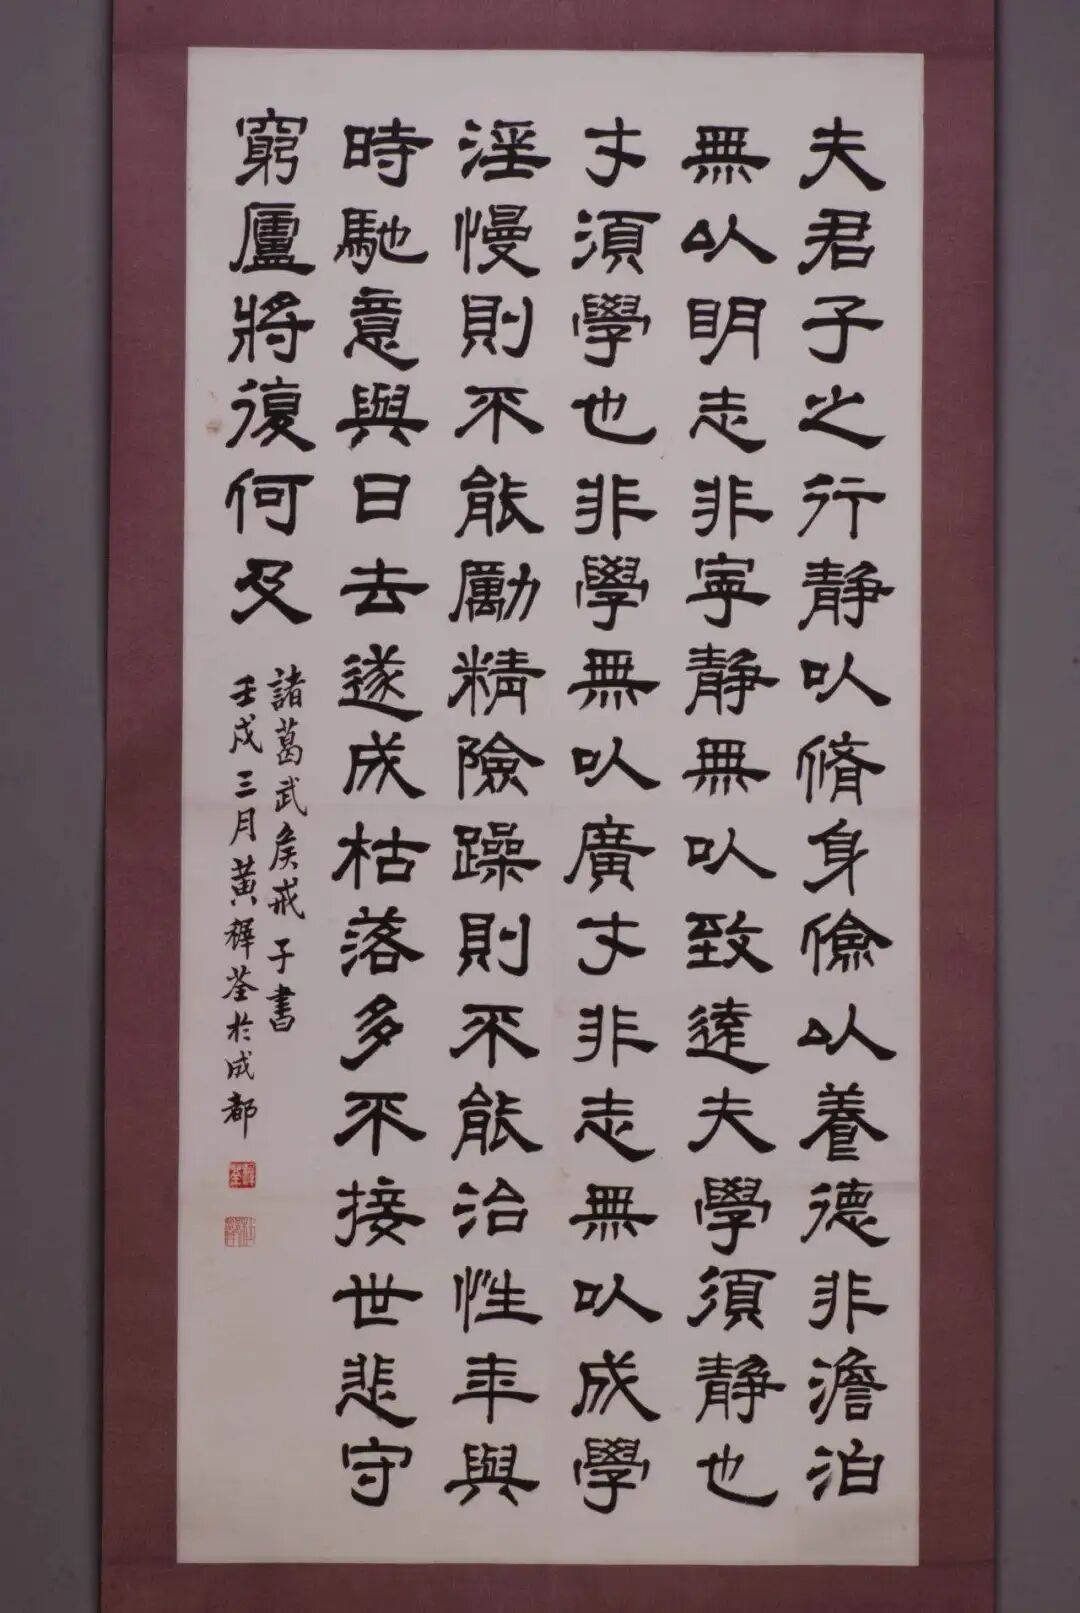 夫君子之行静以脩身儉以養德非澹泊
無以明志非寧静無以致遠夫學須静也
才須學也非學無以廣才非志無以成學
淫慢則不能勵精險躁則不能治性年與
時馳意與日去遂成枯落多不接世悲守
窮廬將復何及
諸葛武侯戒子書
壬戌三月黄穉荃於成都